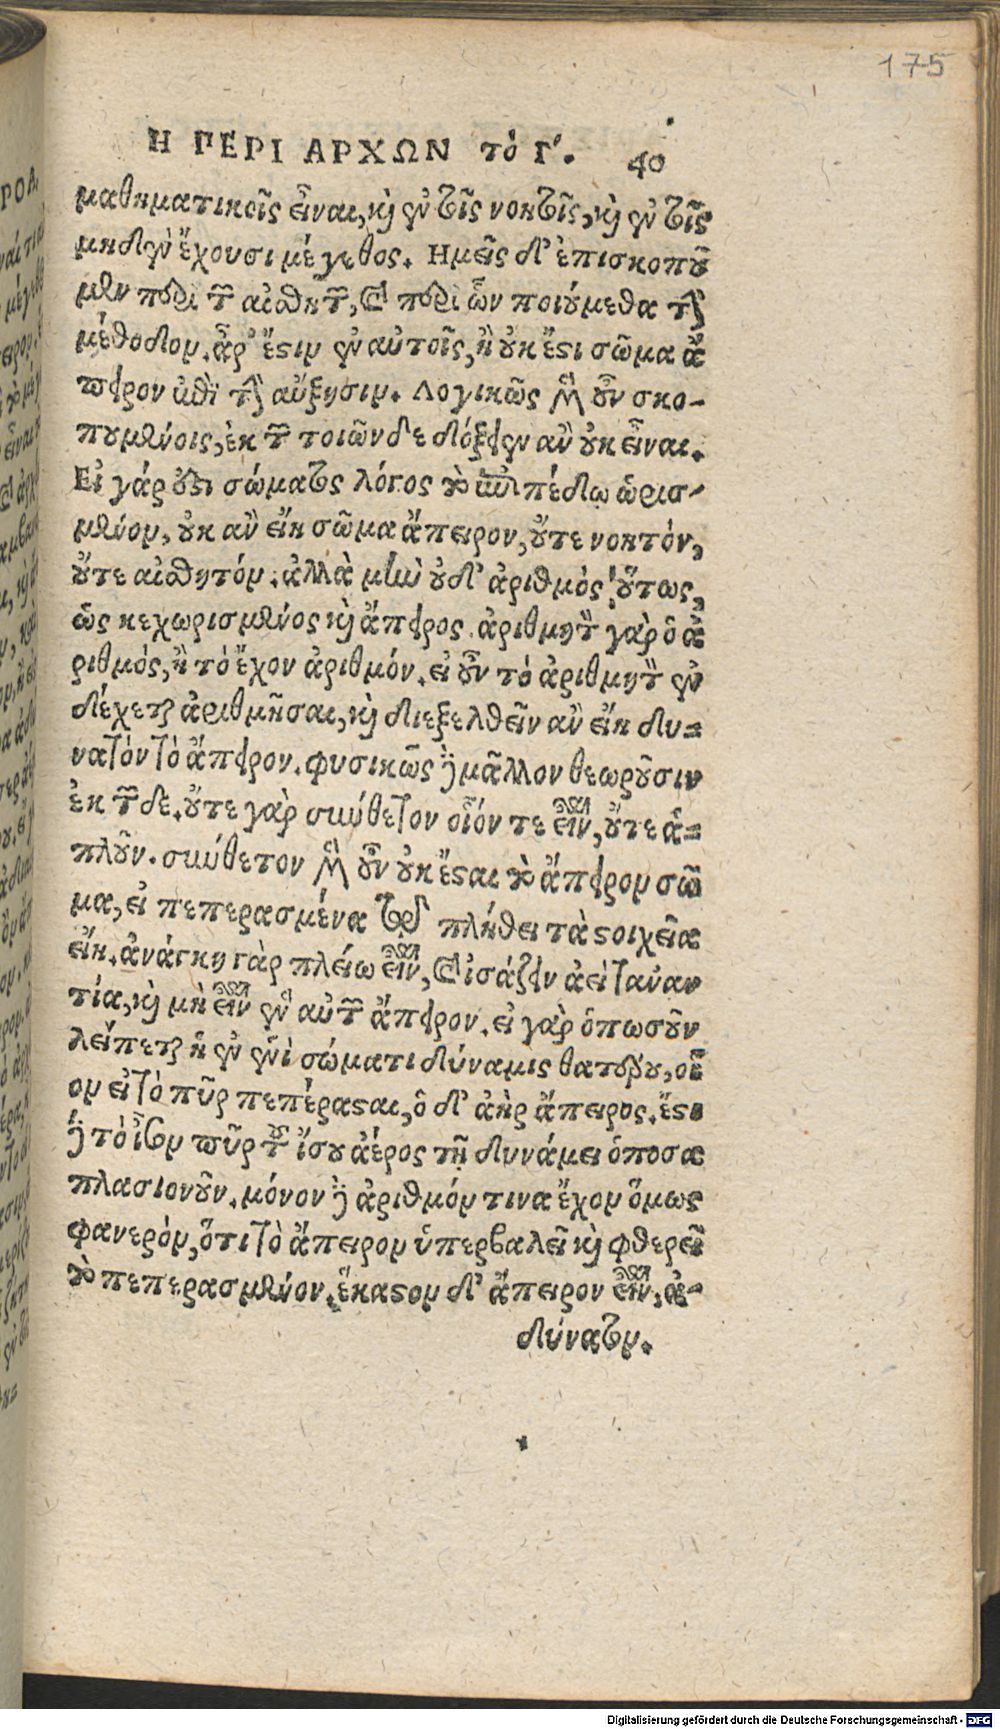 175
Η ΠΕΡΙ ΑΡΧΩΝ τὸ Γ΄. 40
μαθηματικοῖς εἶναι, καὶ ἐν τοῖς νοητοῖς, καὶ ἐν τοῖς
μηδὲν ἔχουσι μέγεθος. Ημεῖς δ' ἐπισκοποῦ
μεν περὶ τῶν αἰσθητῶν, καὶ περὶ ὧν ποιούμεθα τὴν
μέθοδον. ἆρ' ἔστιν ἐν αὐτοῖς, ἢ οὐκ ἔστι σῶμα ἄ
πειρον ἐπὶ τὴν αὔξησιν. Λογικῶς μὲν οὖν σκο-
πουμένοις, ἐκ τῶν τοιῶνδε δόξειεν ἂν οὐκ εἶναι.
Εἰ γάρ ἐστι σώματος λόγος τὸ ἐπιπέδῳ ὡρισ-
μένον, οὐκ ἂν εἴη σῶμα ἄπειρον, οὔτε νοητόν,
οὔτε αἰσθητόν. ἀλλὰ μὴν οὐδ' ἀριθμὸς οὕτως,
ὡς κεχωρισμένος καὶ ἄπειρος. ἀριθμητὸν γὰρ ὁ ἀ
ριθμός, ἢ τὸ ἔχον ἀριθμόν. εἰ οὖν τὸ ἀριθμητὸν ἐν
δέχεται ἀριθμῆσαι, καὶ διεξελθεῖν ἂν εἴη δυ=
νατὸν τὸ ἄπειρον. φυσικῶς δὲ μᾶλλον θεωροῦσιν
ἐκ τῶνδε. οὔτε γὰρ σύνθετον οἷόν τε εἶναι, οὔτε ἁ=
πλοῦν. σύνθετον μὲν οὖν οὐκ ἔσται τὸ ἄπειρον σῶ
μα, εἰ πεπερασμένα τῷ πλήθει τὰ στοιχεῖα
εἴη. ἀνάγκη γὰρ πλείω εἶναι, καὶ ἰσάζειν ἀεὶ ταναν
τία, καὶ μὴ εἶναι ἓν αὐτῶν ἄπειρον. εἰ γὰρ ὁπωσοῦν
λείπεται ἡ ἐν ἑνὶ σώματι δύναμις θατέρου, οἷ
ον εἰ τὸ πῦρ πεπέρασται, ὁ δ' ἀὴρ ἄπειρος. ἔστι
δὲ τὸ ἴσον πῦρ τοῦ ἴσου ἀέρος τῇ δυνάμει ὁποσα
πλασιονοῦν. μόνον δὲ ἀριθμόν τινα ἔχον ὅμως
φανερόν, ὅτι τὸ ἄπειρον ὑπερβαλεῖ καὶ φθερεῖ
τὸ πεπερασμένον. ἕκαστον δ' ἄπειρον εἶναι, ἀ-
δύνατον.
Digitalisierung gefördert durch die Deutsche Forschungsgemeinschaft - DFG